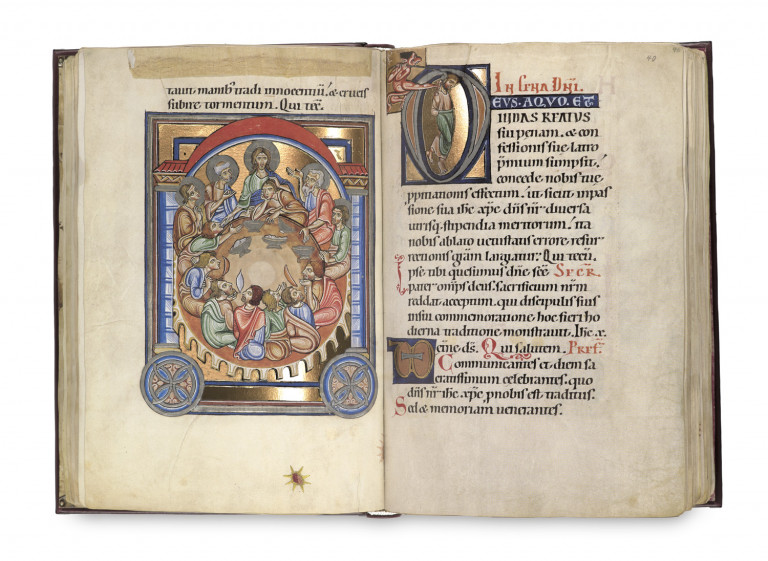 taur manib; tradi innocentiũ. & crucis
subire tormentum. Qui teč.
40
IN CENA DNI.
DEUS. A QUO. ET
IUDAS REATUS
sui penam. & con
fessionis sue latro
p̃mium sumpsit.
concede nobis tuę
ppitiationis effectum. ut sicut in pas
sione sua ihc xp̃c dñs nr̃ diuersa
utrisq; stipendia meritorum. ita
nobis ablato uetustatis errore resur
rectionis gr̃am largiatur. Qui teču.
Ipse tibi quesumus dñe sc̃e SECR̃
pater omp̃s deus. sacrificium nr̃m
reddat acceptum. qui discipulis suis
in sui commemoratione hoc fieri ho
dierna traditione monstrauit. Ihc x.
ds. Qui salutem. Pref.
Communicantes et diem sa
cratissimum celebrantes. quo
dñs nr̃ ihc xp̃c, p nobis est traditus.
Sed & memoriam uenerantes.